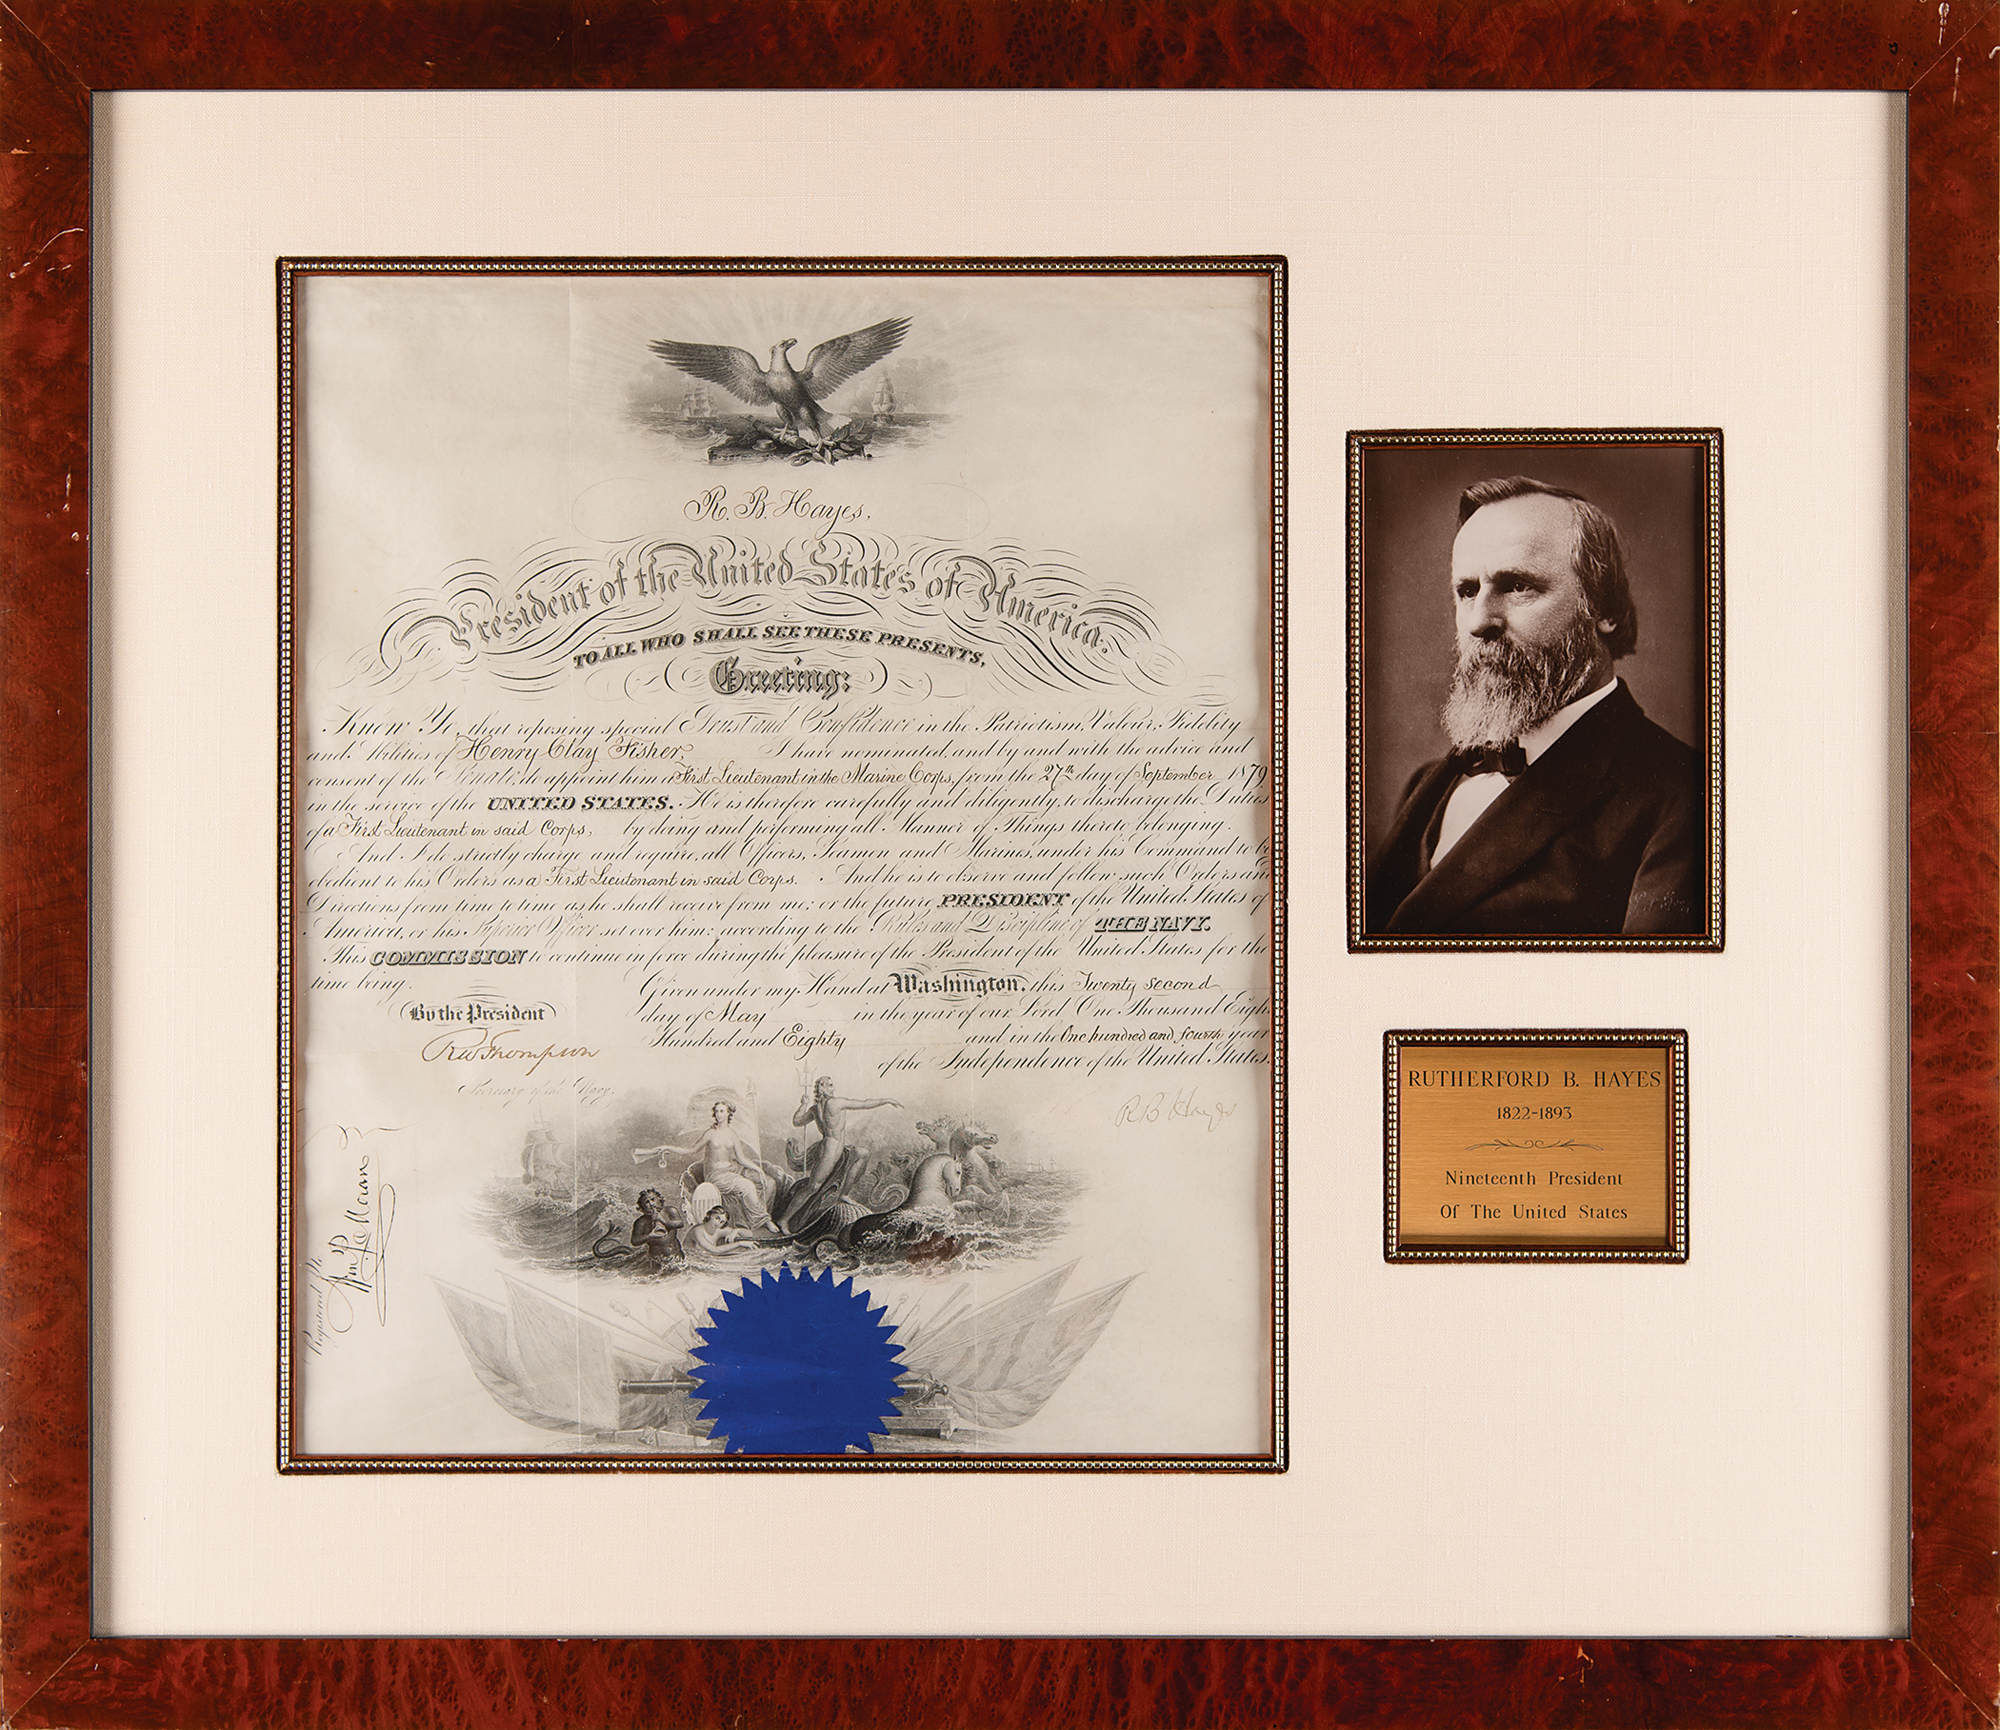 R. B. Hayes,
President of the United States of America.
TO ALL WHO SHALL SEE THESE PRESENTS,
Greeting:
Know Ye, that reposing special Trust and Confidence in the Patriotism, Valour, Fidelity
and Abilities of Henry Clay Fisher, I have nominated, and by and with the advice and
consent of the Senate, do appoint him a First Lieutenant in the Marine Corps, from the 27th day of September 1879
in the service of the UNITED STATES. He is therefore carefully and diligently, to discharge the Duties
of a First Lieutenant in said Corps, by doing and performing all Manner of Things thereto belonging.
And I do strictly charge and require, all Officers, Seamen and Marines, under his Command to be
obedient to his Orders as a First Lieutenant in said Corps. And he is to observe and follow such Orders and
Directions from time to time as he shall receive from me; or the future PRESIDENT of the United States of
America, or his Superior Officer set over him; according to the Rules and Discipline of THE NAVY.
This COMMISSION to continue in force during the pleasure of the President of the United States for the
time being.
Given under my Hand at Washington, this Twenty second
day of May in the year of our Lord One Thousand Eight
Hundred and Eighty and in the One hundred and fourth year
of the Independence of the United States.
By the President
RW Thompson
Secretary of the Navy.
R B Hayes
Registered
Wm P Moran
RUTHERFORD B. HAYES
1822-1893
Nineteenth President
Of The United States